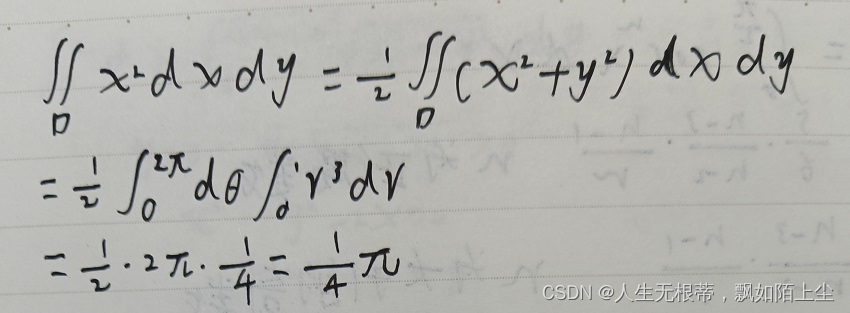 ∬_D x² dx dy = 1/2 ∬_D (x² + y²) dx dy
= 1/2 ∫_0^{2π} dθ ∫_0^1 r³ dr
= 1/2 · 2π · 1/4 = 1/4 π
CSDN @人生无根蒂，飘如陌上尘